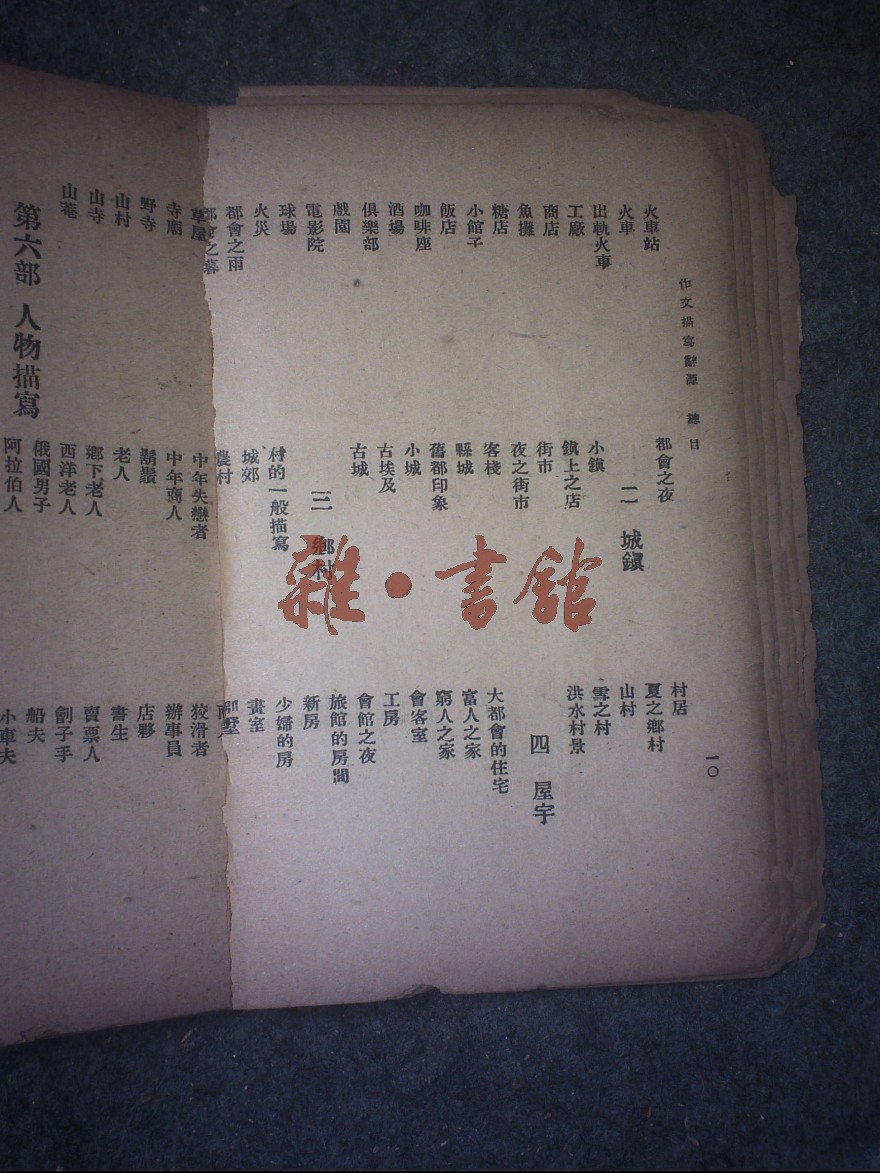 作文描寫辭源 總目
一〇
火車站
火車
出軌火車
工廠
商店
魚攤
糖店
小館子
飯店
咖啡座
酒場
俱樂部
戲園
電影院
球場
火災
都會之雨
都會之暮
都會之夜
二 城鎮
小鎮
鎮上之店
街市
夜之街市
客棧
縣城
舊都印象
小城
古埃及
古城
三 鄉村
村的一般描寫
城郊
農村
村居
夏之鄉村
山村
雪之村
洪水村景
四 屋宇
大都會的住宅
富人之家
窮人之家
會客室
工房
會館之夜
旅館的房間
新房
少婦的房
畫室
別墅
草屋
寺廟
野寺
山村
山寺
山菴
第六部 人物描寫
中年失戀者
中年商人
老人
鄉下老人
西洋老人
俄國男子
阿拉伯人
狡滑者
辦事員
店夥
書生
賣票人
劊子手
船夫
小車夫
雜·書館